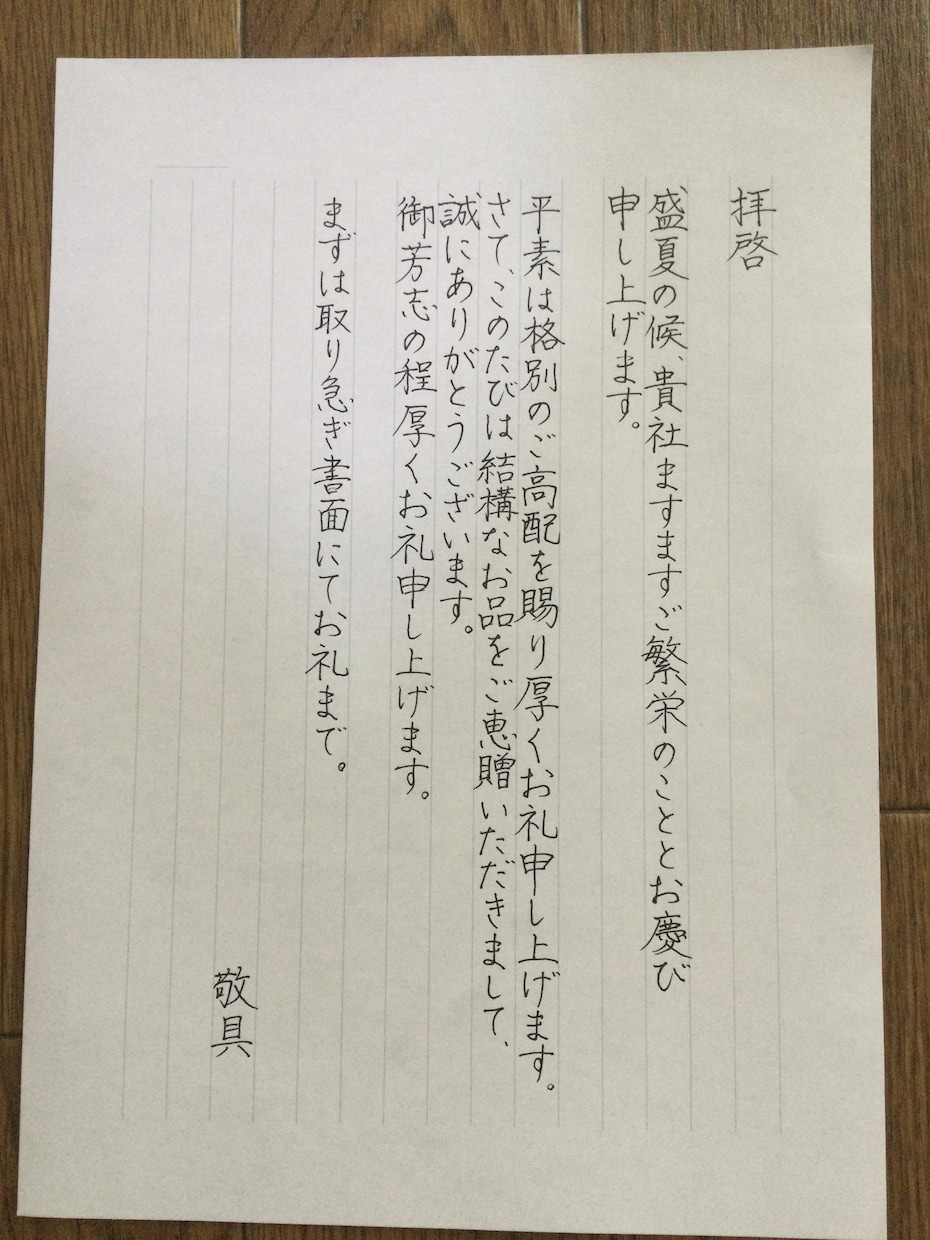 拝啓
盛夏の候、貴社ますますご繁栄のこととお慶び
申し上げます。
平素は格別のご高配を賜り厚くお礼申し上げます。
さて、このたびは結構なお品をご恵贈いただきまして、
誠にありがとうございます。
御芳志の程厚くお礼申し上げます。
まずは取り急ぎ書面にてお礼まで。
敬具